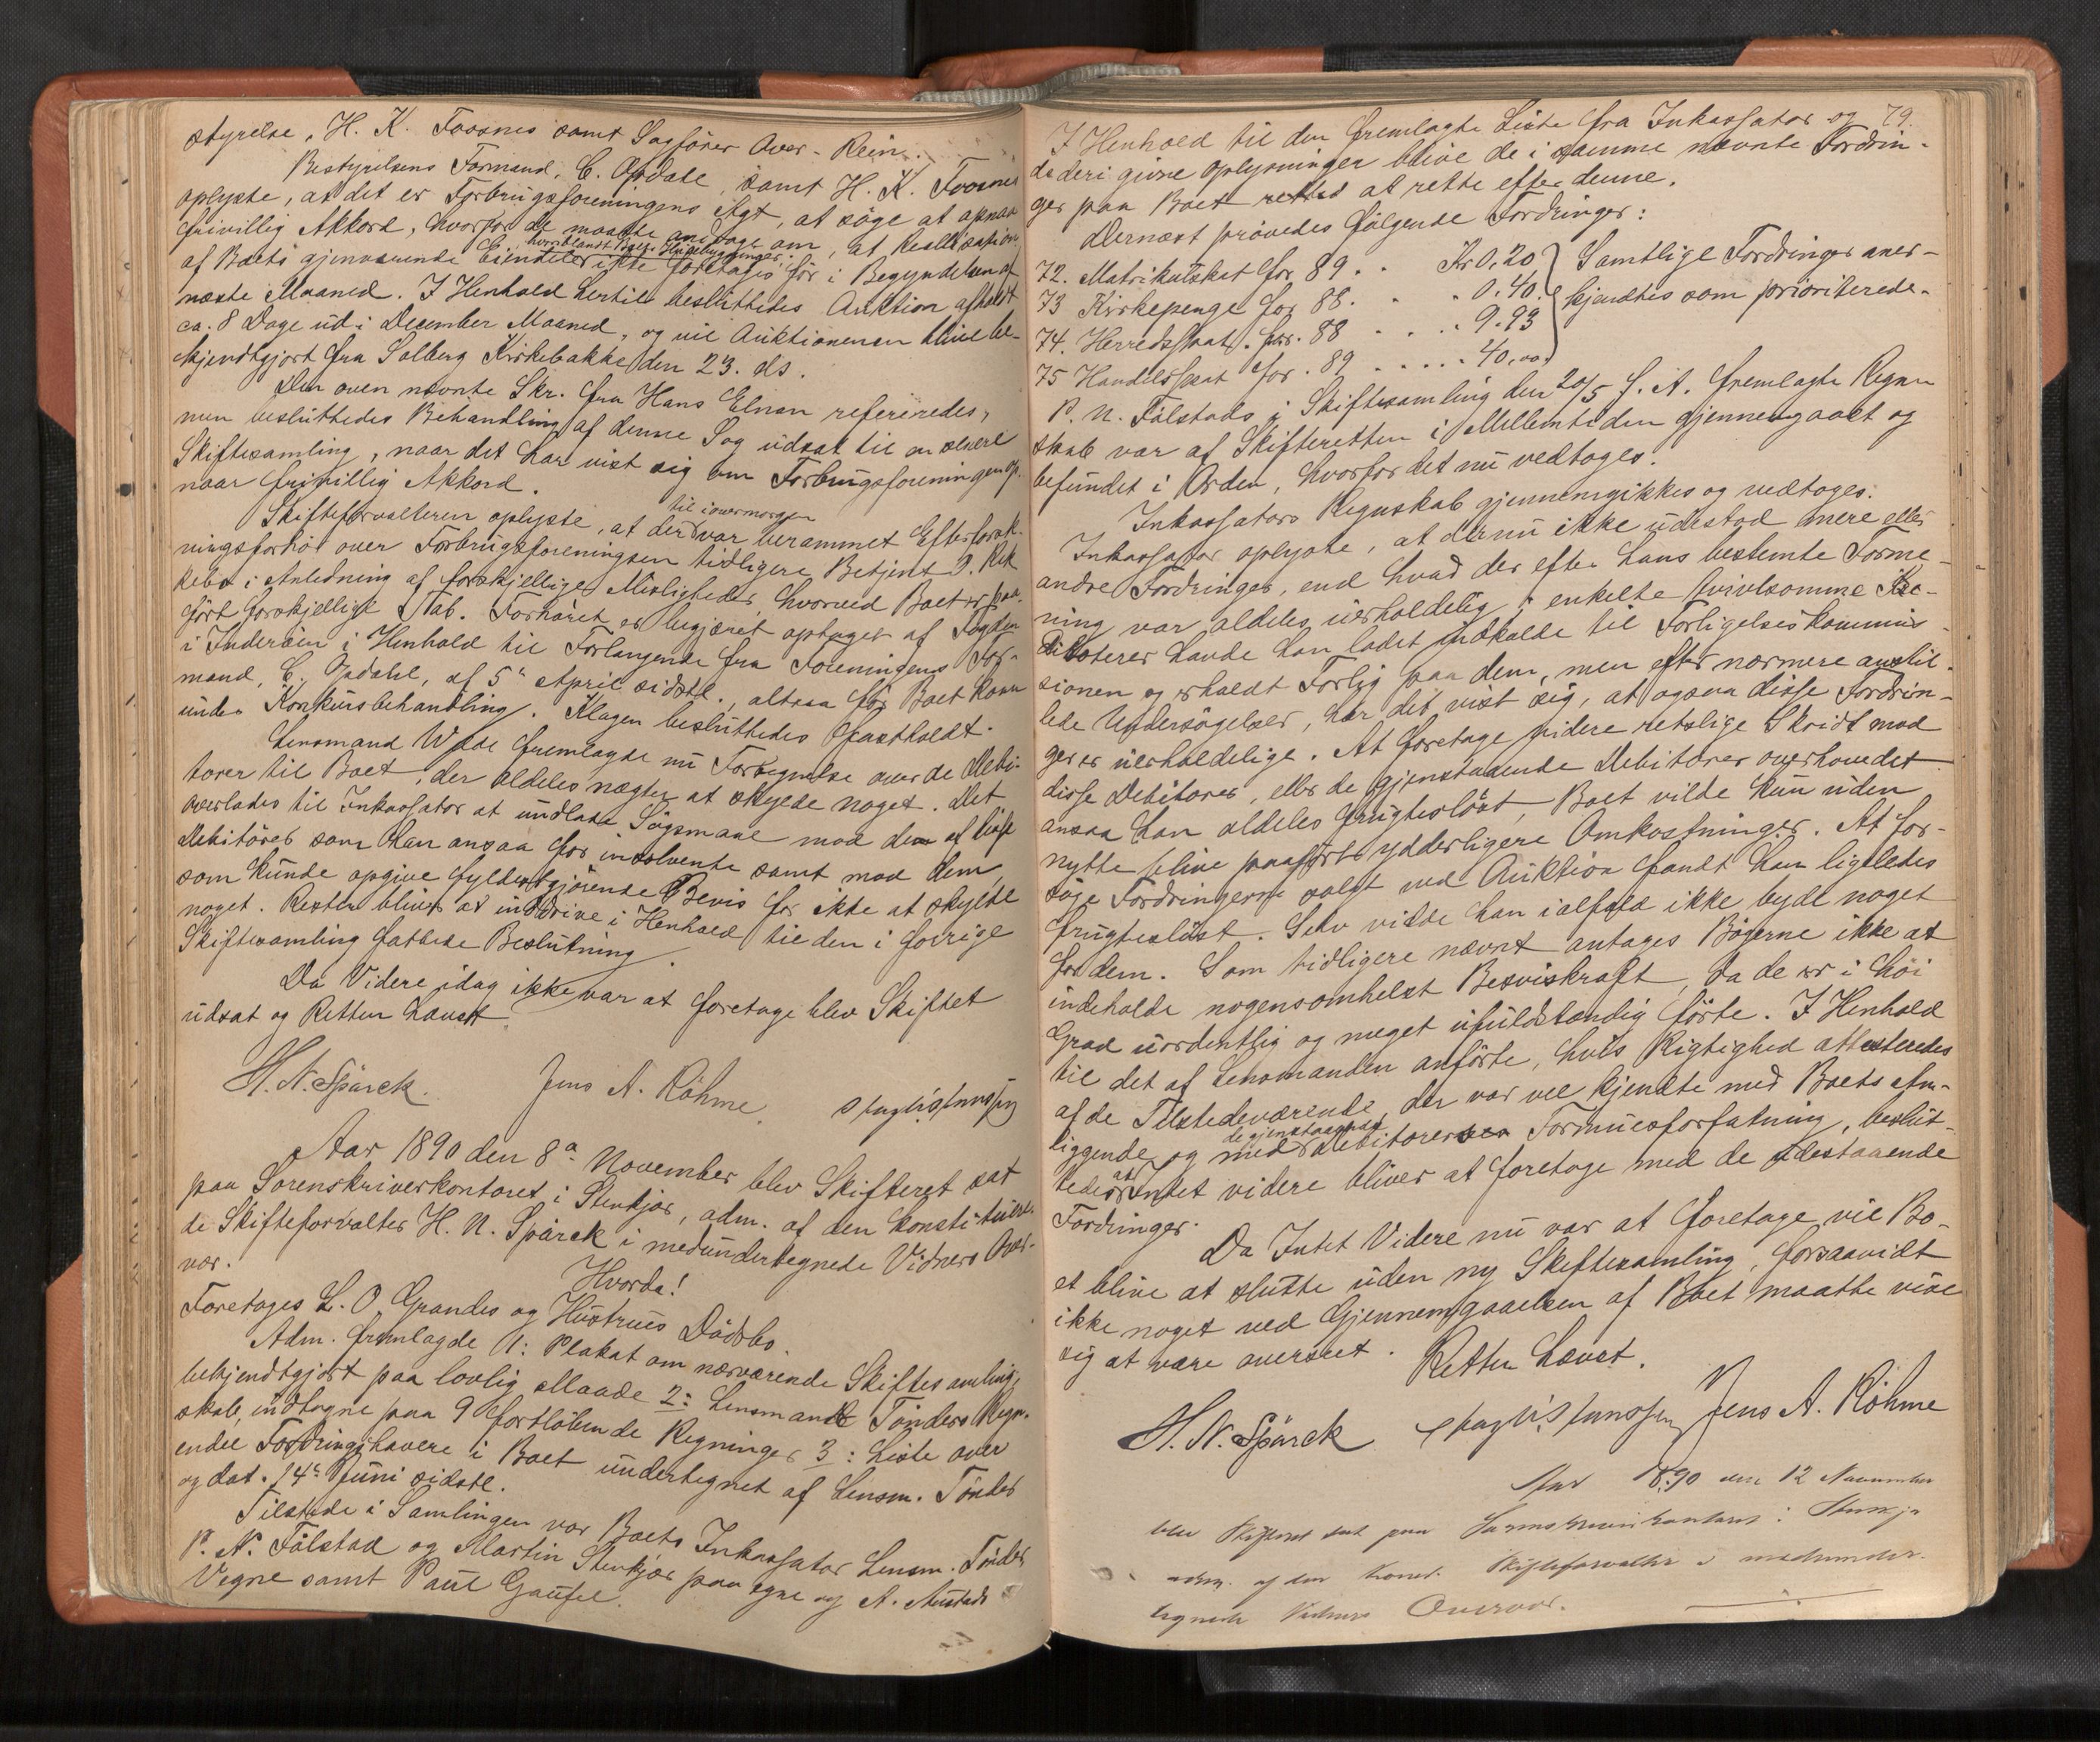 styrelse, H. K. Foosnes samt Sagfører Over-Rein.
Bestyrelsens Formand, C. Opdahl, samt H. K. Foosnes
oplyste, at det er Forbrugsforeningens Agt, at søge at opnaa
frivillig Akkord, hvorfor de maatte andrage om, at Realisation
hvoriblandt Boets Husebygninger
af Boets gjenværende Eiendeler ikke foretages før i Begyndelsen af
næste Maaned. I Henhold hertil besluttedes Auktion afholdt
ca. 8 Dage ud i December Maaned, og vil Auktionen blive be-
kjendtgjort fra Solberg Kirkebakke den 23. ds.
Den oven nævnte Skr. fra Hans Elnan refereredes,
men besluttedes Behandling af denne Sag udsat til en senere
Skiftesamling, naar det har vist sig om Forbrugsforeningen op-
naar frivillig Akkord.
til iovermorgen
Skifteforvalteren oplyste, at der var berammet Efterforsk-
ningsforhør over Forbrugsforeningens tidligere Betjent O. Rek
kebo i Anledning af forskjellige Misligheder, hvorved Boet er paa-
ført forskjellige Tab. Forhøret er begjæret optaget af Fogden
i Inderøen i Henhold til Forlangende fra Foreningens For-
mand, C. Opdahl, af 5te April sidstl., altsaa før Boet kom
under Konkursbehandling. Klagen besluttedes fastholdt.
Lensmand Wade fremlagde nu Fortegnelse over de Debi-
torer til Boet, der aldeles nægter at skylde noget. Det
overlades til Inkassator at undlade Søgsmaal mod dem af disse
Debitorer som han ansaa for insolvente samt mod dem,
som kunde opgive fyldestgjørende Bevis for ikke at skylde
noget. Resten bliver at inddrive i Henhold til den i forrige
Skiftesamling fattede Beslutning.
Da Videre idag ikke var at foretage blev Skiftet
udsat og Retten hævet.
H. N. Spärck. Jens A. Röhme
Aar 1890 den 8de November blev Skifteret sat
paa Sorenskriverkontoret i Stenkjær, adm. af den konstituere-
de Skifteforvalter H. N. Spärck i medundertegnede Vidners Over-
vær.
Hvorda!
Foretages L. O. Grandes og Hustrues Dødsbo.
Adm. fremlagde 1: Plakat om nærværende Skiftesamling,
bekjendtgjort paa lovlig Maade 2: Lensmand Tønders Regn-
skab, indtagne paa 9 fortløbende Regninger 3: Liste over
endel Fordringshavere i Boet undertegnet af Lensm. Tønder
og dat. 14de Juni sidstl.
Tilstede i Samlingen var Boets Inkassator Lensm. Tønder
P. N. Fålstad og Martin Stenkjær paa egne og A. Austads
Vegne samt Paul Gaufsel.
79.
I Henhold til den fremlagte Liste fra Inkassator og
de deri givne Oplysninger blive de i samme nævnte Fordrin-
ger paa Boet rettet at rette efter denne.
Dernæst prøvedes følgende Fordringer:
72. Matrikulskat for 89 . . Kr 0.20 Samtlige Fordringer aner-
73 Kirkepenge for 88 . . . 0.40 kjendtes som prioriterede.
74. Herredsskat for 88 . . . 9.93
75 Handelsskat for 89 . . . . 40.00
P. N. Fålstads i Skiftesamling den 20/5 f. A. fremlagte Regn-
skab var af Skifteretten i Mellemtiden gjennemgaaet og
befundet i Orden, hvorfor det nu vedtoges.
Inkassators Regnskab gjennemgikkes og vedtoges.
Inkassator oplyste, at der nu ikke udestod mere eller
andre Fordringer, end hvad der efter hans bestemte Forme-
ning var aldeles uerholdelig; enkelte tvivlsomme De-
bitorer havde han ladet indkalde til Forligelseskommis-
sionen og erholdt Forlig paa dem, men efter nærmere anstil-
lede Undersøgelser, har det vist sig, at ogsaa disse Fordrin-
ger er uerholdelige. At foretage videre retslige Skridt mod
disse Debitorer, eller de gjenstaaende Debitorer overhovedet
ansaa han aldeles frugtesløst, Boet vilde kun uden
nytte blive paaført ydderligere Omkostninger. At for-
søge Fordringerne solgt ved Auktion fandt han ligeledes
frugtesløst. Selv vilde han ialfald ikke byde noget
for dem. Som tidligere nævnt antages Bøgerne ikke at
indeholde nogensomhelst Beviskraft, da de er i høi
Grad uordentlig og meget ufuldstændig førte. I Henhold
til det af Lensmanden anførte, hvis Rigtighed attesteredes
af de Tilstedeværende, der var vel kjendte med Boets An-
de gjenstaaende
liggende og med Debitorernes Formuesforfatning, beslut-
at
tedes Intet videre bliver at foretage med de udestaaende
Fordringer.
Da Intet Videre nu var at foretage vil Bo-
et blive at slutte uden ny Skiftesamling, forsaavidt
ikke noget ved Gjennemgaaelsen af Boet maatte vise
sig at være overseet. Retten hævet.
H. N. Spärck Jens A. Röhme
Aar 1890 den 12 November
blev Skifteret sat paa Sorenskriverkontoret i Stenkjær
adm. af den konst. Skifteforvalter i medunder-
tegnede Vidners Overvær.